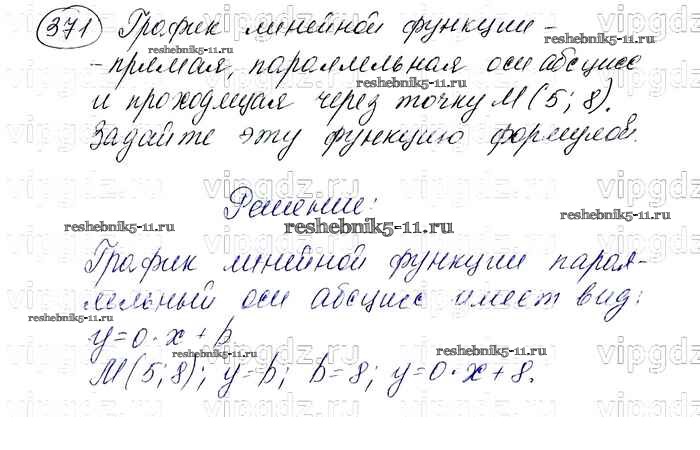 371 График линейной функции -
- прямая, параллельная оси абсцисс
и проходящая через точку M(5; 8).
Задайте эту функцию формулой.
Решение:
График линейной функции парал-
лельный оси абсцисс имеет вид:
y=0·x+b
M(5;8); y=b; b=8; y=0·x+8.
vipgdz.ru
reshebnik5-11.ru